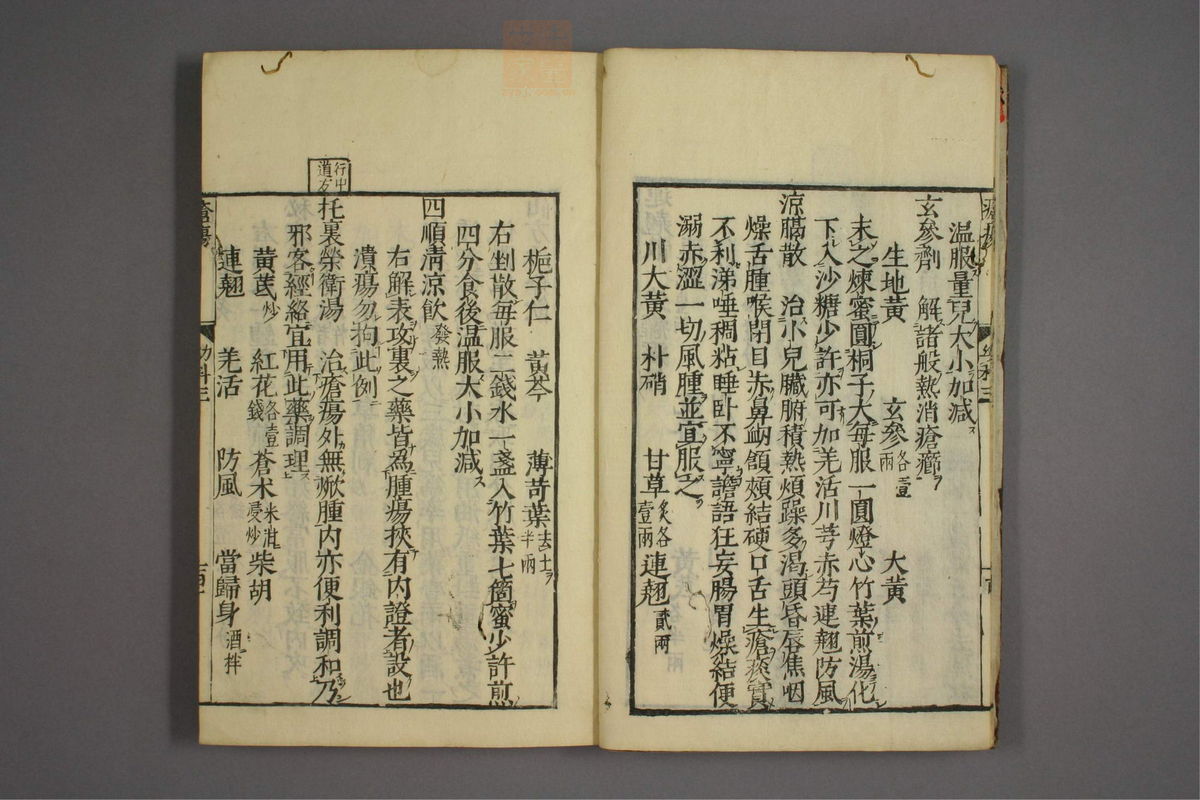 温服量兒大小加減
玄參劑　解諸般熱消瘡癤
生地黃　玄參各壹兩　大黃
末之煉蜜圓桐子大每服一圓燈心竹葉煎湯化
下入沙糖少許亦可加羌活川芎赤芍連翹防風
涼膈散　治小兒臟腑積熱煩躁多渴頭昏唇焦咽
燥舌腫喉閉目赤鼻衄頷頰結硬口舌生瘡痰實
不利涕唾稠粘睡卧不寧譫語狂妄腸胃燥結便
溺赤澀一切風腫並宜服之
川大黃　朴硝　甘草炙各壹兩　連翹貳兩
梔子仁　黃芩　薄苛葉去土半兩
右剉散每服二錢水一盞入竹葉七箇蜜少許煎
四分食後温服大小加減
四順清涼飲發熱
右解表攻裏之藥皆為腫瘍挾有内證者設也
潰瘍勿拘此例
行中道友
托裏榮衛湯　治瘡瘍外無焮腫内亦便利調和乃
邪客經絡宜用此藥調理
黃芪炒　紅花各壹錢　蒼术米泔浸炒　柴胡
連翹　羌活　防風　當歸身酒拌
瘡瘍
幼科三